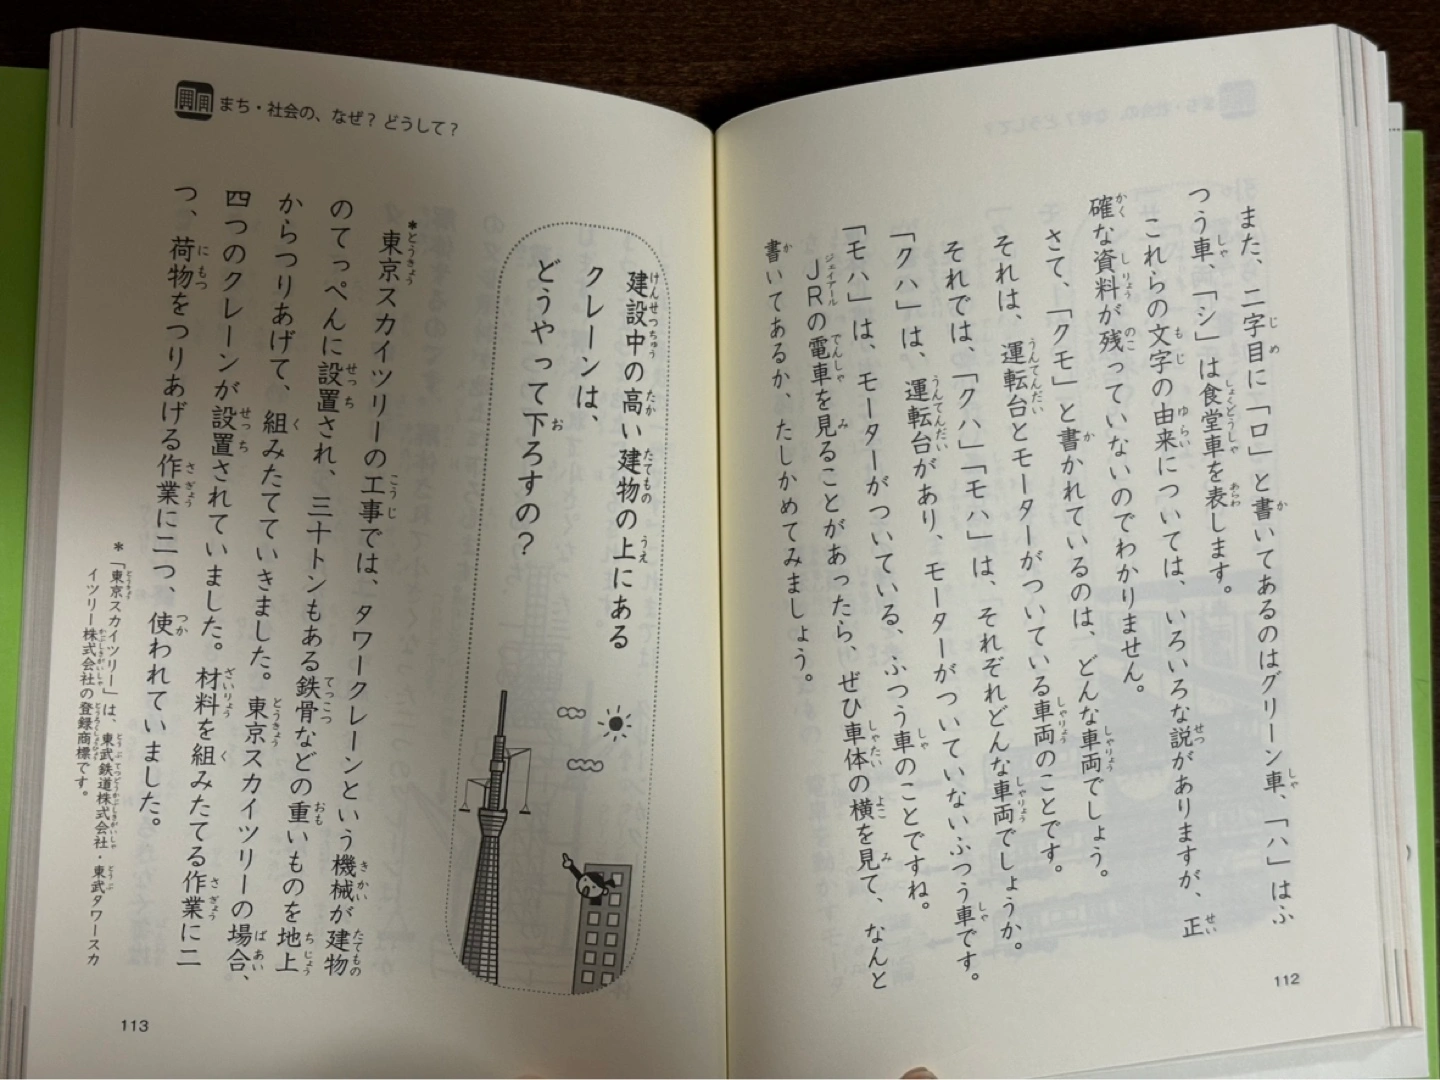 また、二字目に「ロ」と書いてあるのはグリーン車、「ハ」はふ
つう車、「シ」は食堂車を表します。
これらの文字の由来については、いろいろな説がありますが、正
確な資料が残っていないのでわかりません。
さて、「クモ」と書かれているのは、どんな車両でしょう。
それは、運転台とモーターがついている車両のことです。
それでは、「クハ」「モハ」は、それぞれどんな車両でしょうか。
「クハ」は、運転台があり、モーターがついていないふつう車です。
「モハ」は、モーターがついている、ふつう車のことですね。
JRの電車を見ることがあったら、ぜひ車体の横を見て、なんと
書いてあるか、たしかめてみましょう。
112
まち・社会の、なぜ？どうして？
建設中の高い建物の上にある
クレーンは、
どうやって下ろすの？
*東京スカイツリーの工事では、タワークレーンという機械が建物
のてっぺんに設置され、三十トンもある鉄骨などの重いものを地上
からつりあげて、組みたてていきました。東京スカイツリーの場合、
四つのクレーンが設置されていました。材料を組みたてる作業に二
つ、荷物をつりあげる作業に二つ、使われていました。
*「東京スカイツリー」は、東武鉄道株式会社・東武タワースカ
イツリー株式会社の登録商標です。
113